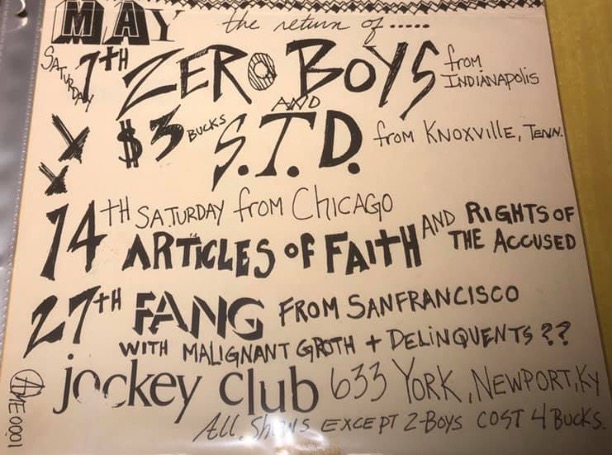 MAY the return of .....
SATURDAY 7TH ZERO BOYS from INDIANAPOLIS
AND
$3 BUCKS S.T.D. from KNOXVILLE, TENN.
14TH SATURDAY from CHICAGO
ARTICLES OF FAITH AND RIGHTS OF THE ACCUSED
27TH FANG FROM SANFRANCISCO
WITH MALIGNANT GROTH + DELINQUENTS ??
jockey club 633 YORK, NEWPORT, KY
All, Shows EXCEPT Z-BOYS COST 4 BUCKS.